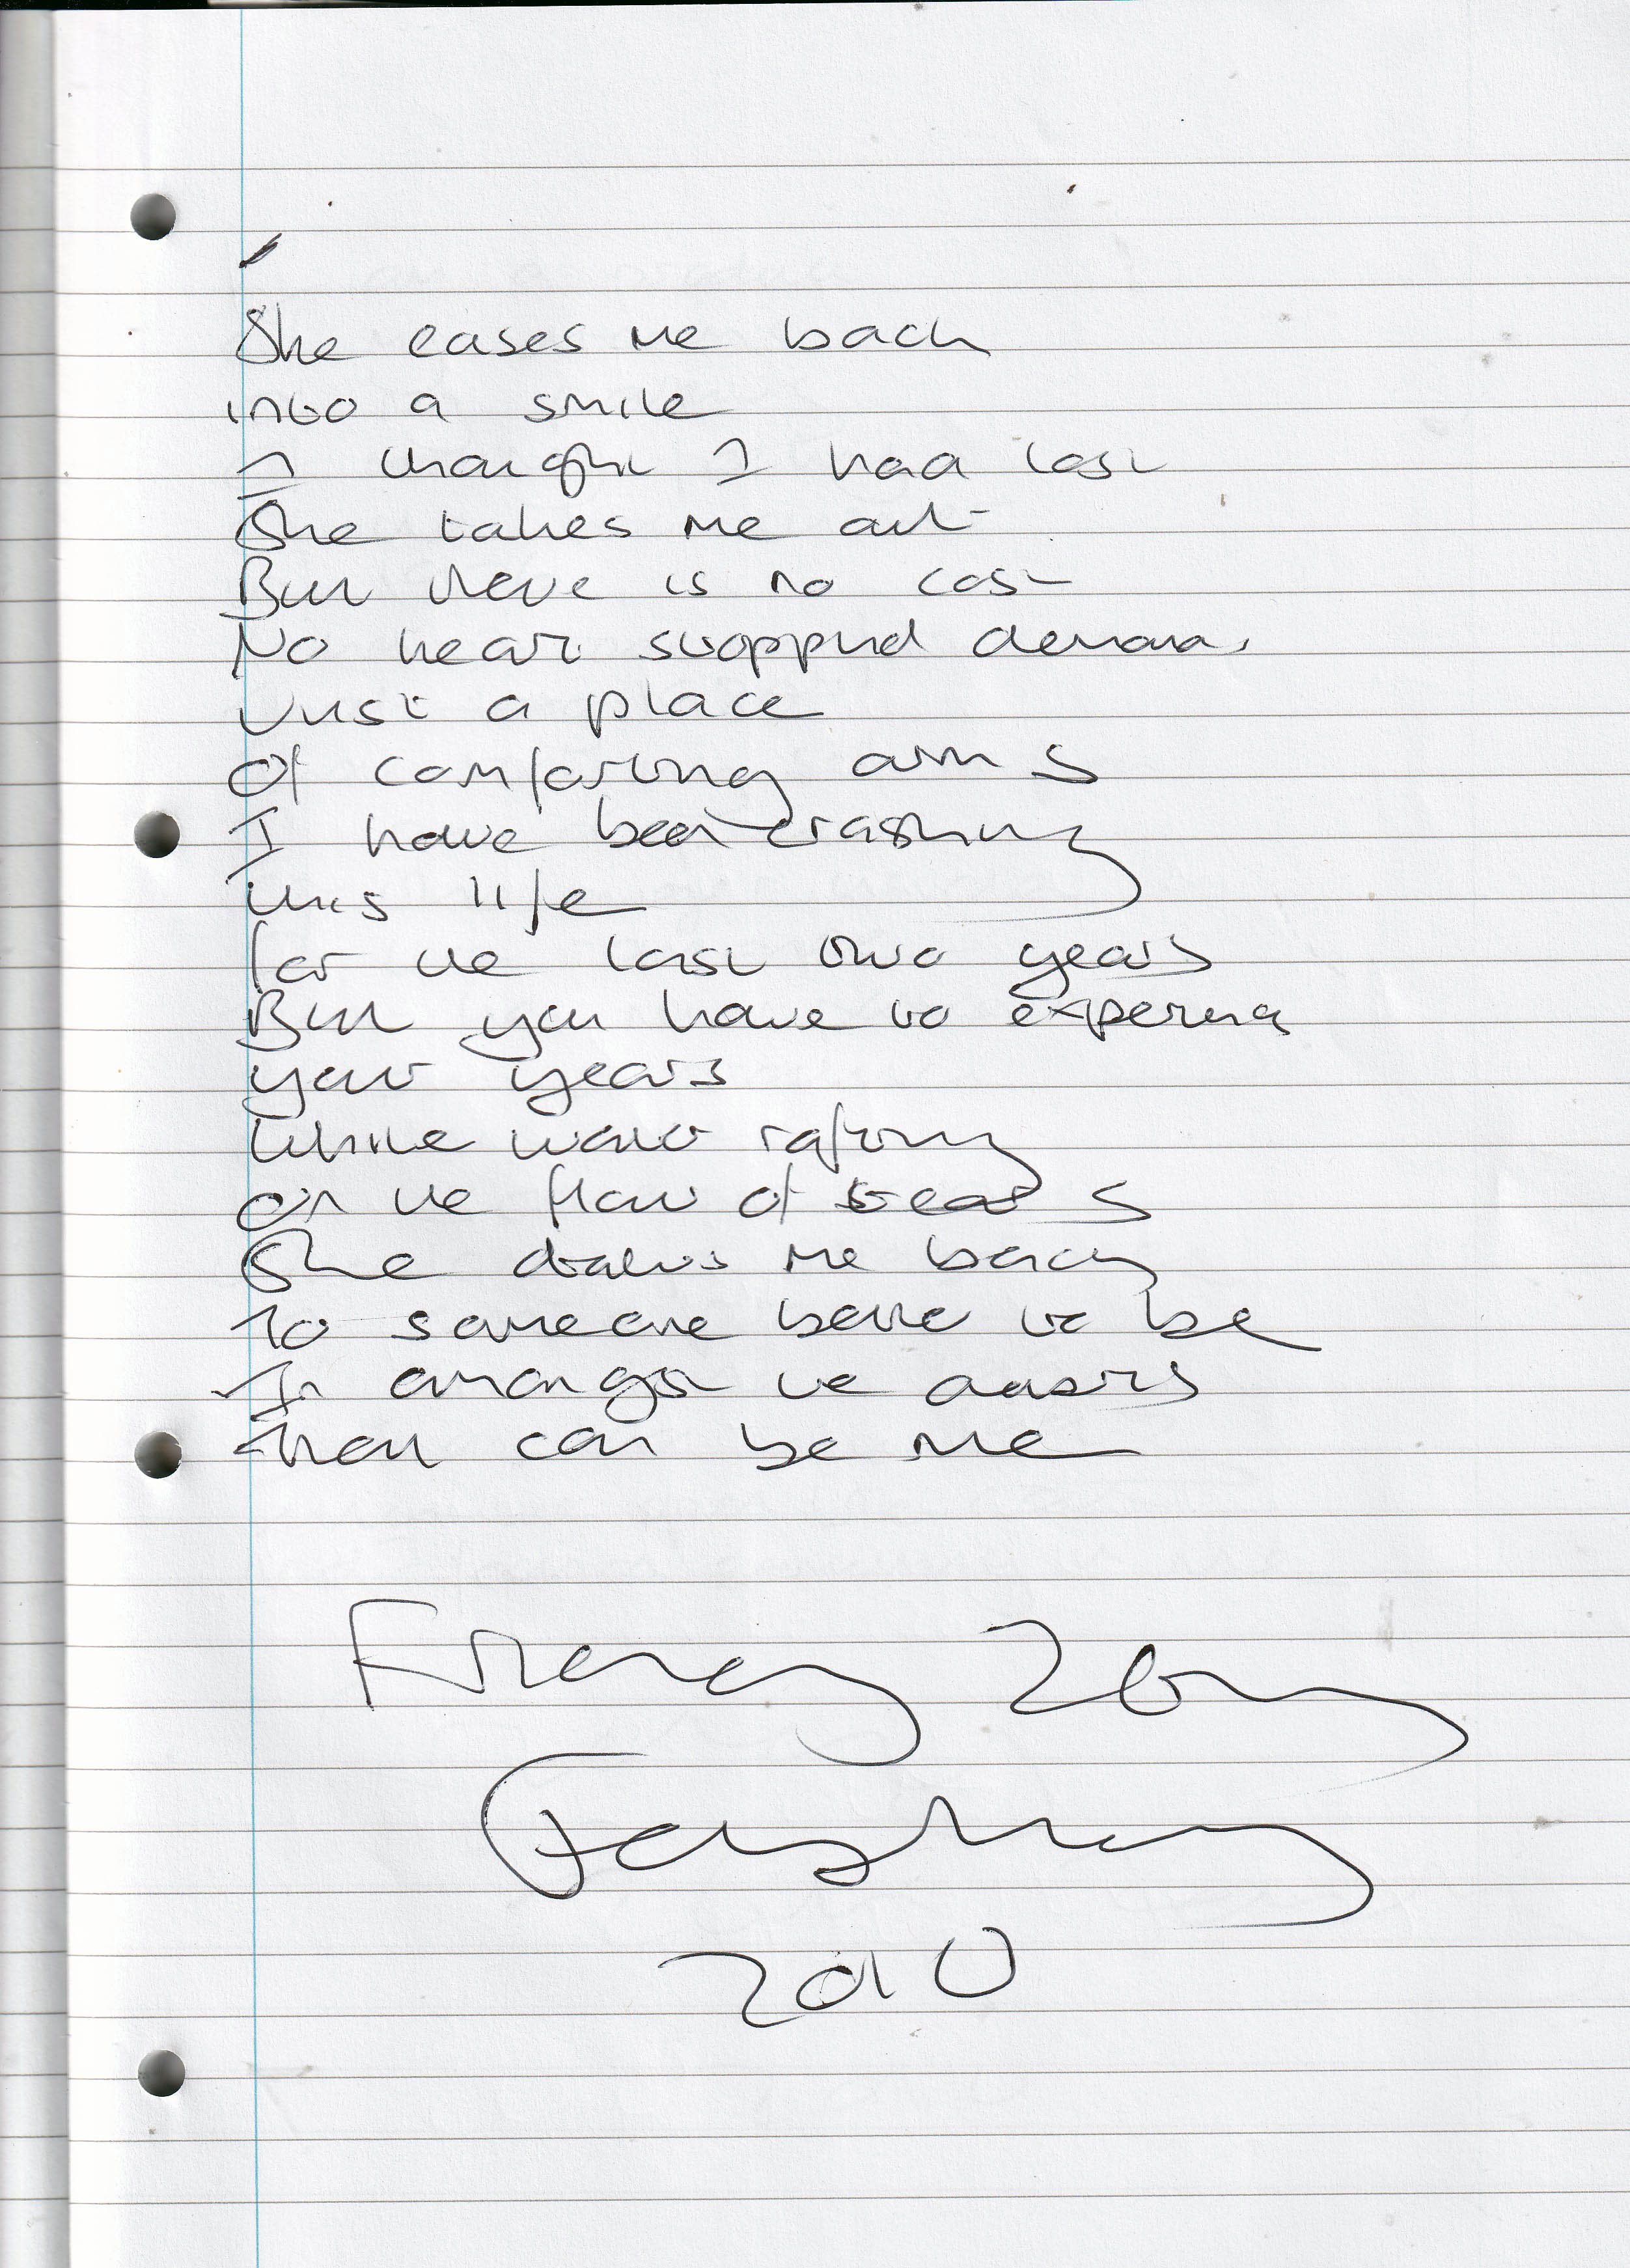 She eases me back
into a smile
I thought I had lost
She takes me out
But there is no cost
No heart stopped
Just a place
Of comforting arms
I have been crashing
this life
for the last two years
But you have to
your years
While water rafting
on the flow of tears
She draws me back
To someone to be
In amongst the
that can be me
2010